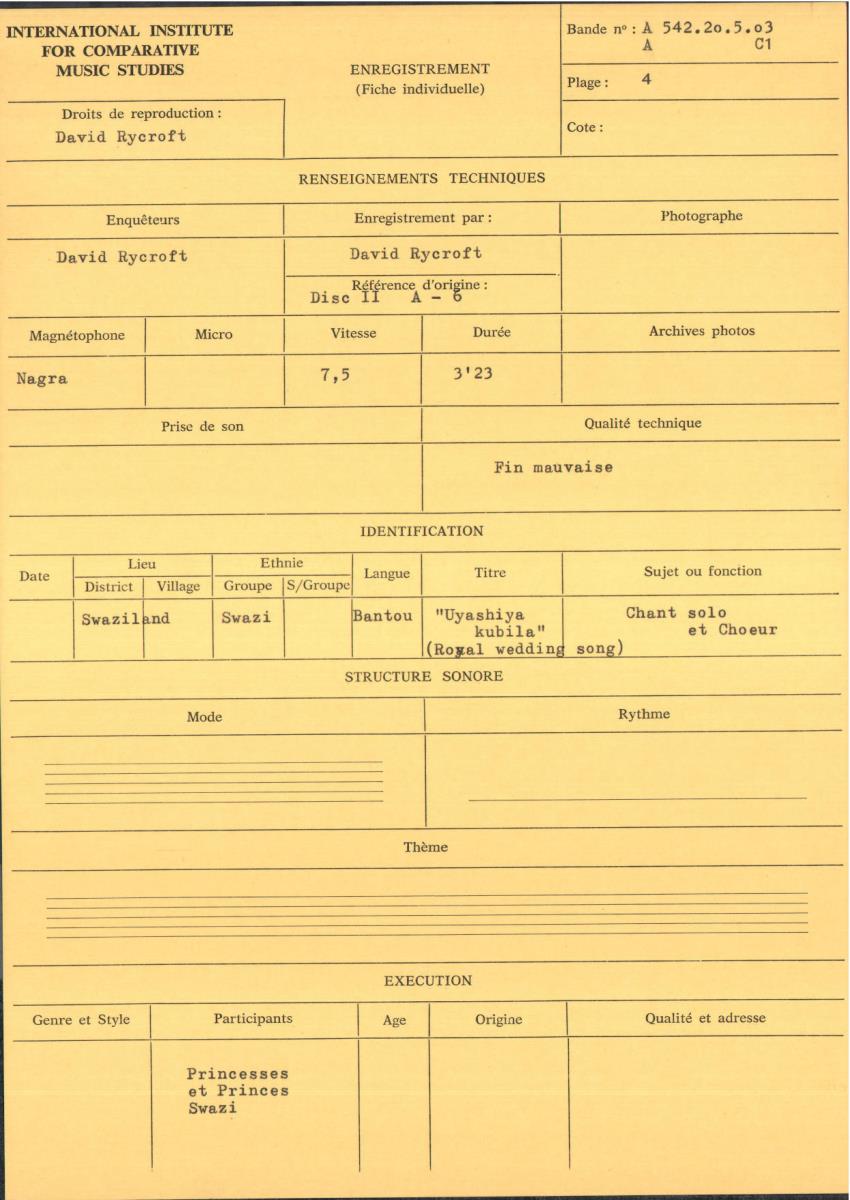 INTERNATIONAL INSTITUTE
FOR COMPARATIVE
MUSIC STUDIES
Droits de reproduction :
David Rycroft
ENREGISTREMENT
(Fiche individuelle)
Bande nº : A 542.2o.5.o3
A C1
Plage : 4
Cote :
RENSEIGNEMENTS TECHNIQUES
Enquêteurs
Enregistrement par :
Photographe
David Rycroft
David Rycroft
Référence d'origine :
Disc II A - 6
Magnétophone
Micro
Vitesse
Durée
Archives photos
Nagra
7,5
3'23
Prise de son
Qualité technique
Fin mauvaise
IDENTIFICATION
Date
Lieu
District
Village
Ethnie
Groupe
S/Groupe
Langue
Titre
Sujet ou fonction
Swaziland
Swazi
Bantou
"Uyashiya
kubila"
(Royal wedding song)
Chant solo
et Choeur
STRUCTURE SONORE
Mode
Rythme
Thème
EXECUTION
Genre et Style
Participants
Age
Origine
Qualité et adresse
Princesses
et Princes
Swazi